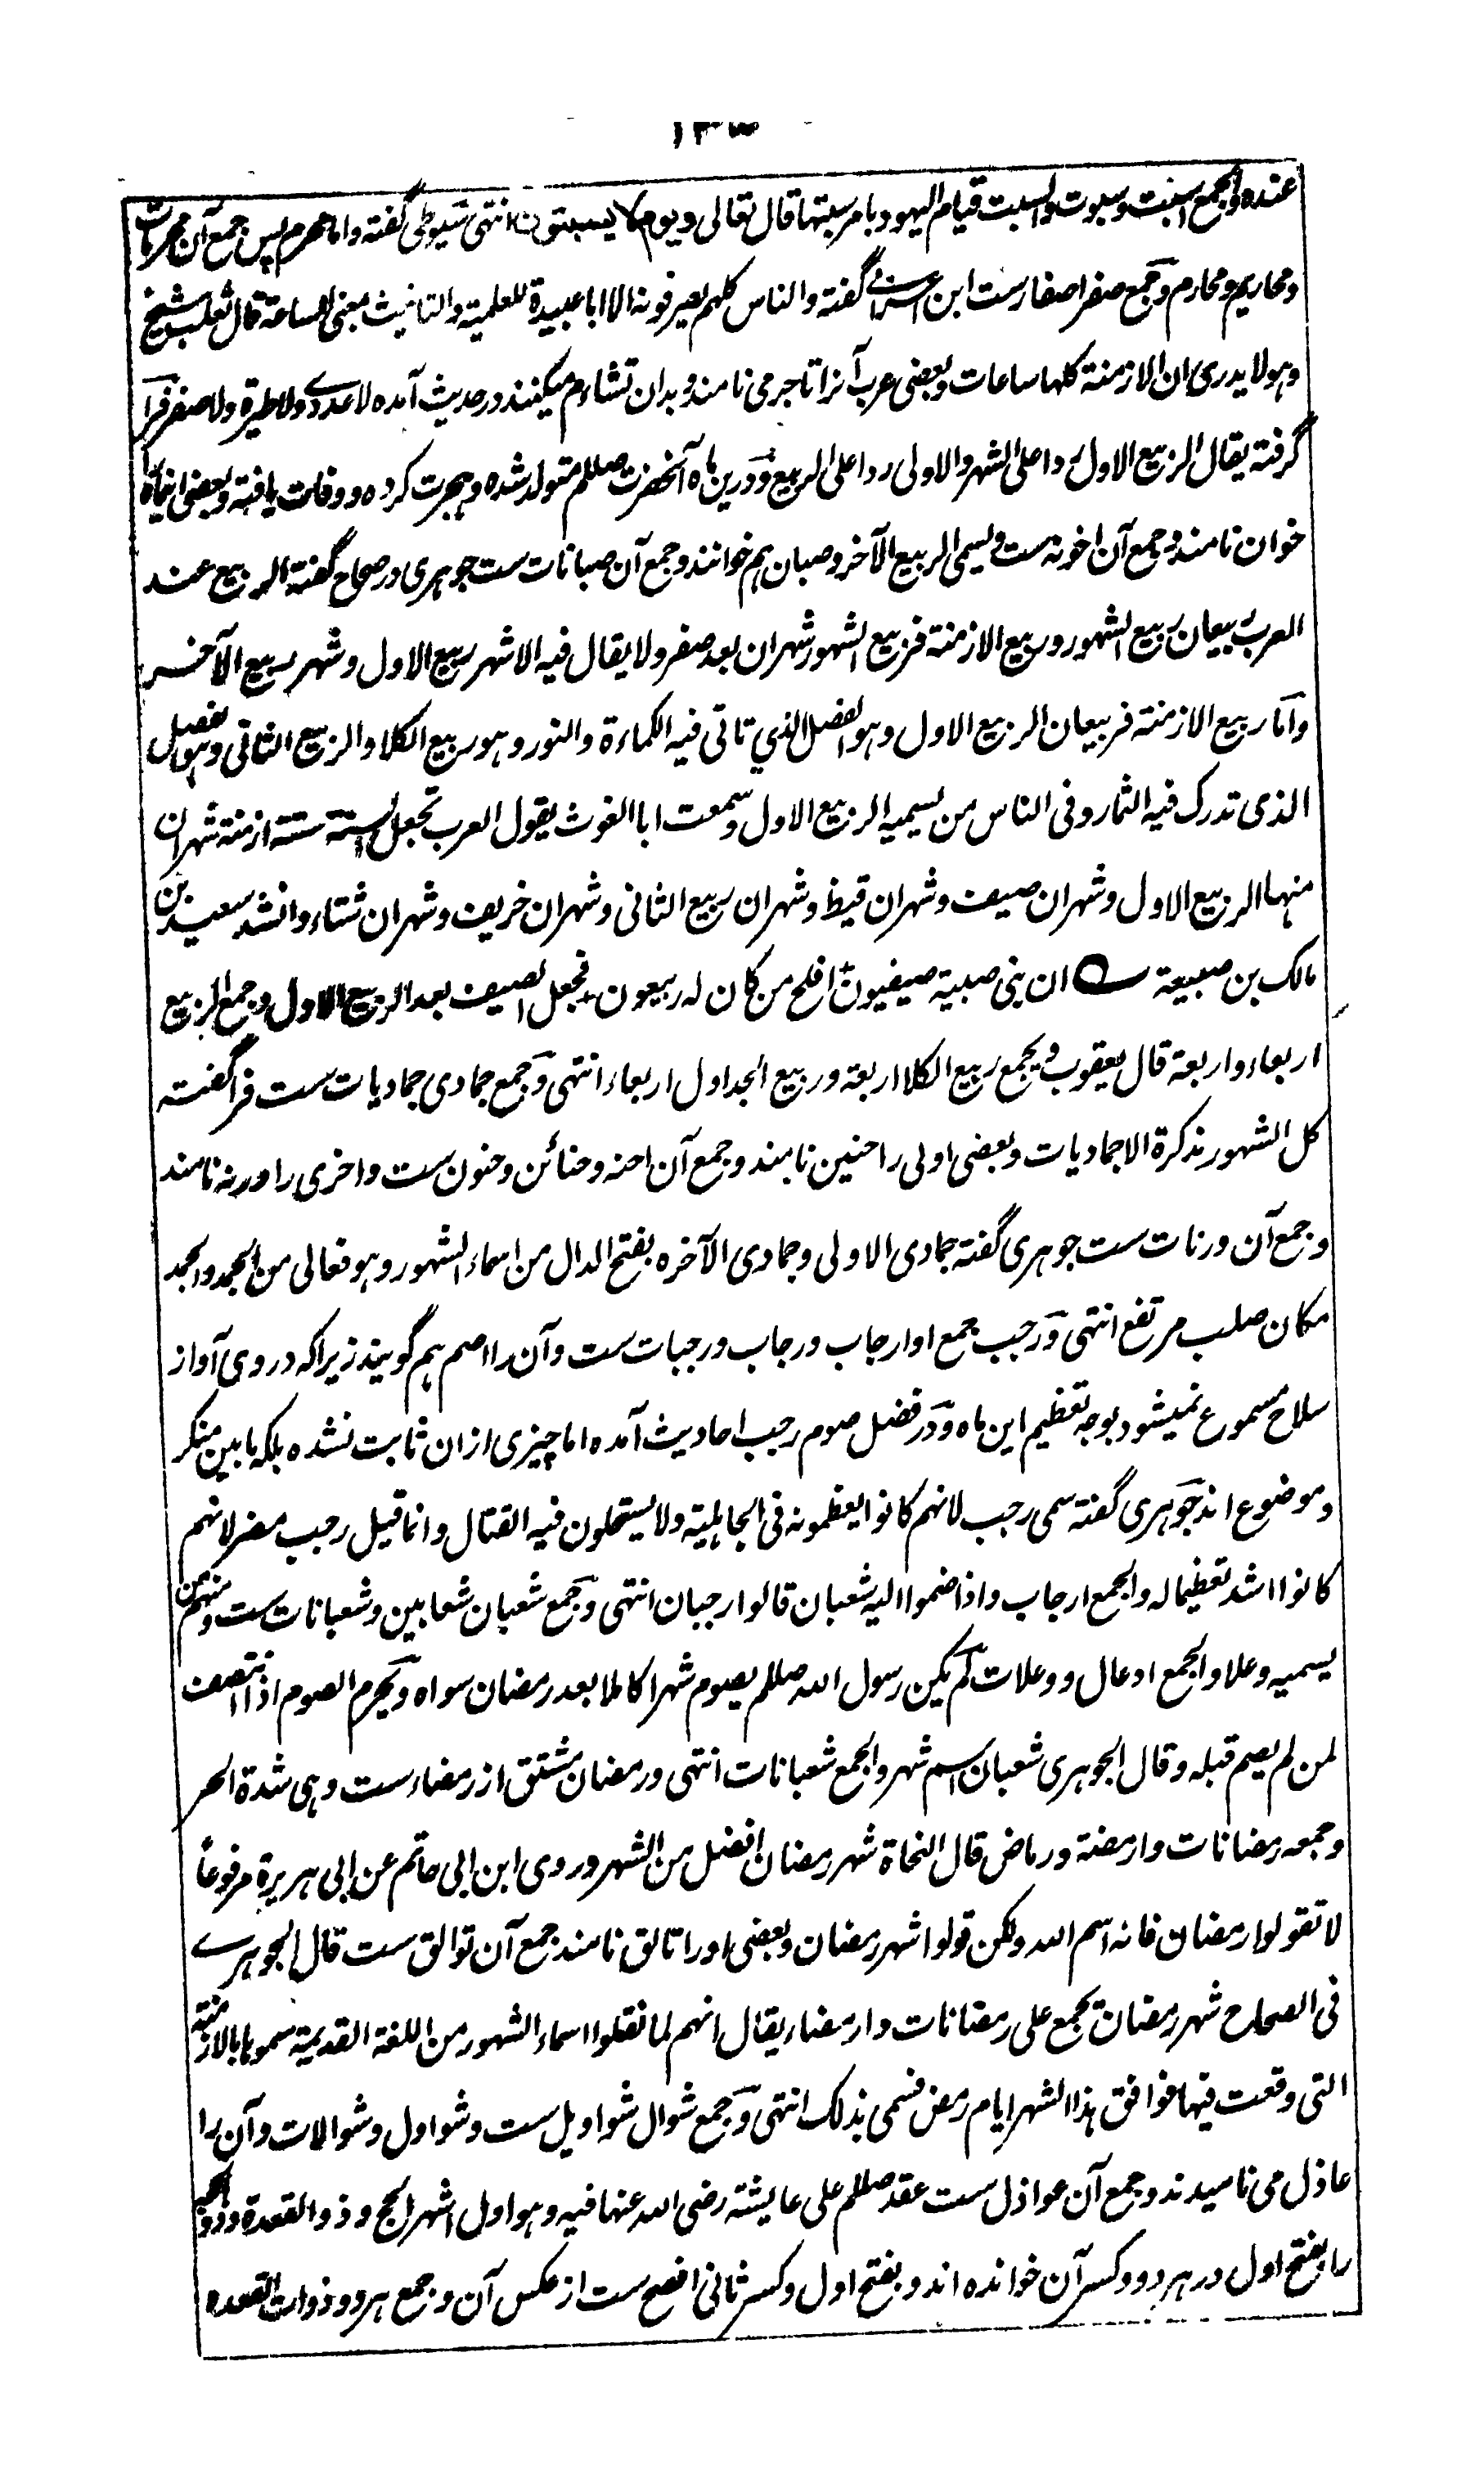 ۱۳۳
عنده والجمع اسبت وسبوت والسبت قیام الیهود بامر سبتها قال تعالی ویوم لا یسبتون انتهی سیوطی گفته واما محرم پس جمع آن محرمات
ومحاریم ومحارم وجمع صفر اصفارست ابن گفته والناس کلهم یصرفونه الا ابا عبیدة للعلمیة والتانیث بمعنی الساعة قال ثعلب شیخ
وهو لا یدری ان الازمنة کلها ساعات وبعضی عرب آنرا تاجر می نامند وبدان تشاءم میکنند در حدیث آمده لا عدوی ولا طیرة ولا صفر فرا
گرفته یقال الربیع الاول ردا علی الشهر والاولی ردا علی الربیع ودرین ماه آنحضرت صللم متولد شده وهجرت کرده ووفات یافته وبعضی اینماه
خوان نامند وجمع آن اخونه ست ویسمی الربیع الآخر وصبان هم خوانند وجمع آن صبانات ست جوهری در صحاح گفته الربیع عند
العرب ربیعان ربیع الشهور وربیع الازمنة فربیع الشهور شهران بعد صفر ولا یقال فیه الا شهر ربیع الاول وشهر ربیع الآخر
واما ربیع الازمنة فربیعان الربیع الاول وهو الفصل الذی تاتی فیه الکماءة والنور وهو ربیع الکلاء والربیع الثانی وهو الفصل
الذی تدرک فیه الثمار وفی الناس من یسمیه الربیع الاول وسمعت ابا الغوث یقول العرب تجعل السنة ستة ازمنة شهران
منها الربیع الاول وشهران صیف وشهران قیظ وشهران ربیع الثانی وشهران خریف وشهران شتاء وانشد سعید بن
مالک بن ضبیعة ان بنی صبیة صیفیون افلح من کان له ربیعون فجعل الصیف بعد الربیع الاول وجمع الربیع
اربعاء واربعة قال یعقوب ویجمع ربیع الکلا اربعة وربیع الجداول اربعاء انتهی وجمع جمادی جمادیات ست فرا گفته
کل الشهور مذکرة الا جمادیات وبعضی اولی را حنین نامند وجمع آن احنه وحنائن وحنون ست واخری را ورنه نامند
وجمع آن ورنات ست جوهری گفته جمادی الاولی وجمادی الآخره بفتح الدال من اسماء الشهور وهو فعالی من الجمد والجمد
مکان صلب مرتفع انتهی ورجب جمع او ارجاب ورجاب ورجبات ست وآن را اصم هم گویند زیرا که در وی آواز
سلاح مسموع نمیشود بوجه تعظیم این ماه ودر فضل صوم رجب احادیث آمده اما چیزی ازان ثابت نشده بلکه ما بین منکر
وموضوع اند جوهری گفته سمی رجب لانهم کانوا یعظمونه فی الجاهلیة ولا یستحلون فیه القتال وانما قیل رجب مضر لانهم
کانوا اشد تعظیما له والجمع ارجاب واذا ضموا الیه شعبان قالوا رجبان انتهی وجمع شعبان شعابین وشعبانات ست ومنهم من
یسمیه وعلا والجمع اوعال ووعلات لم یکن رسول الله صللم یصوم شهرا کاملا بعد رمضان سواه ویحرم الصوم اذا انتصف
لمن لم یصم قبله وقال الجوهری شعبان اسم شهر والجمع شعبانات انتهی ورمضان مشتق از رمضاء ست وهی شدة الحر
وجمعه رمضانات وارمضة ورماض قال النحاة شهر رمضان افضل من الشهر وروی ابن ابی حاتم عن ابی هریرة مرفوعاً
لا تقولوا رمضان فانه اسم الله ولکن قولوا شهر رمضان وبعضی او را تالق نامند جمع آن توالق ست قال الجوهری
فی الصحاح شهر رمضان یجمع علی رمضانات وارمضاء یقال انهم لما نقلوا اسماء الشهور من اللغة القدیمة سموها بالازمنة
التی وقعت فیها فوافق هذا الشهر ایام رمض فسمی بذلک انتهی وجمع شوال شواویل ست وشواول وشوالات وآن را
عاذل می نامیدند وجمع آن عواذل ست عقد صللم علی عایشة رضی الله عنها فیه وهو اول اشهر الحج وذو القعدة وذو الحجه
را بفتح اول در هر دو وکسر آن خوانده اند و بفتح اول وکسر ثانی افصح ست از عکس آن وجمع هر دو ذوات القعده